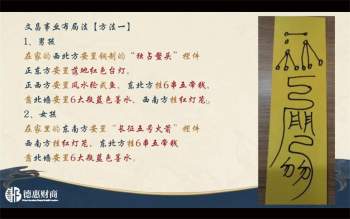 文昌事业布局法【方法一】
1、男孩
在家的西北方安置铜制的“独占鳌头”摆件
正东方安置落地红色台灯。
正西方安置风水轮或鱼，东北方挂6串五帝钱
靠北墙安置6大瓶蓝色墨水，西南方挂红灯笼。
2、女孩
在家里的东南方安置“长征五号火箭”摆件
西南方挂红灯笼，东北方挂6串五帝钱
靠北墙安置6大瓶蓝色墨水。
德惠财商